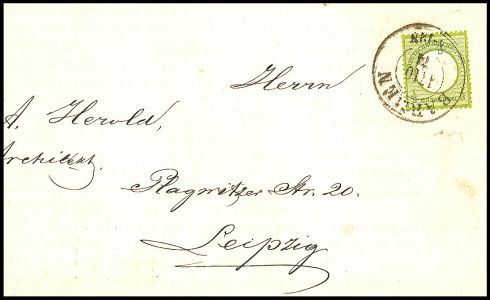 Herrn
A. Herold,
Architekt,
Plagwitzer Str. 20.
Leipzig